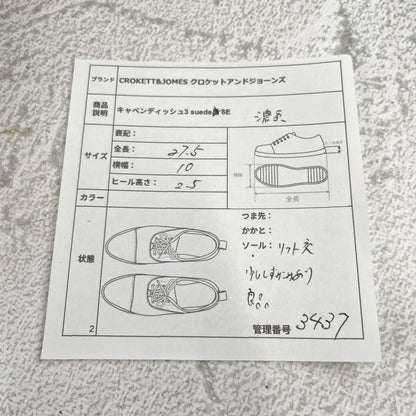 ブランド CROKETT&JOMES クロケットアンドジョーンズ
商品説明 キャベンディッシュ3 suede 6E 濃茶
サイズ
表記：
全長： 27.5
横幅： 10
ヒール高さ： 2.5
横幅
全長
カラー
状態
つま先：
かかと：
ソール： リフト交
少し
良。
2
管理番号 3437